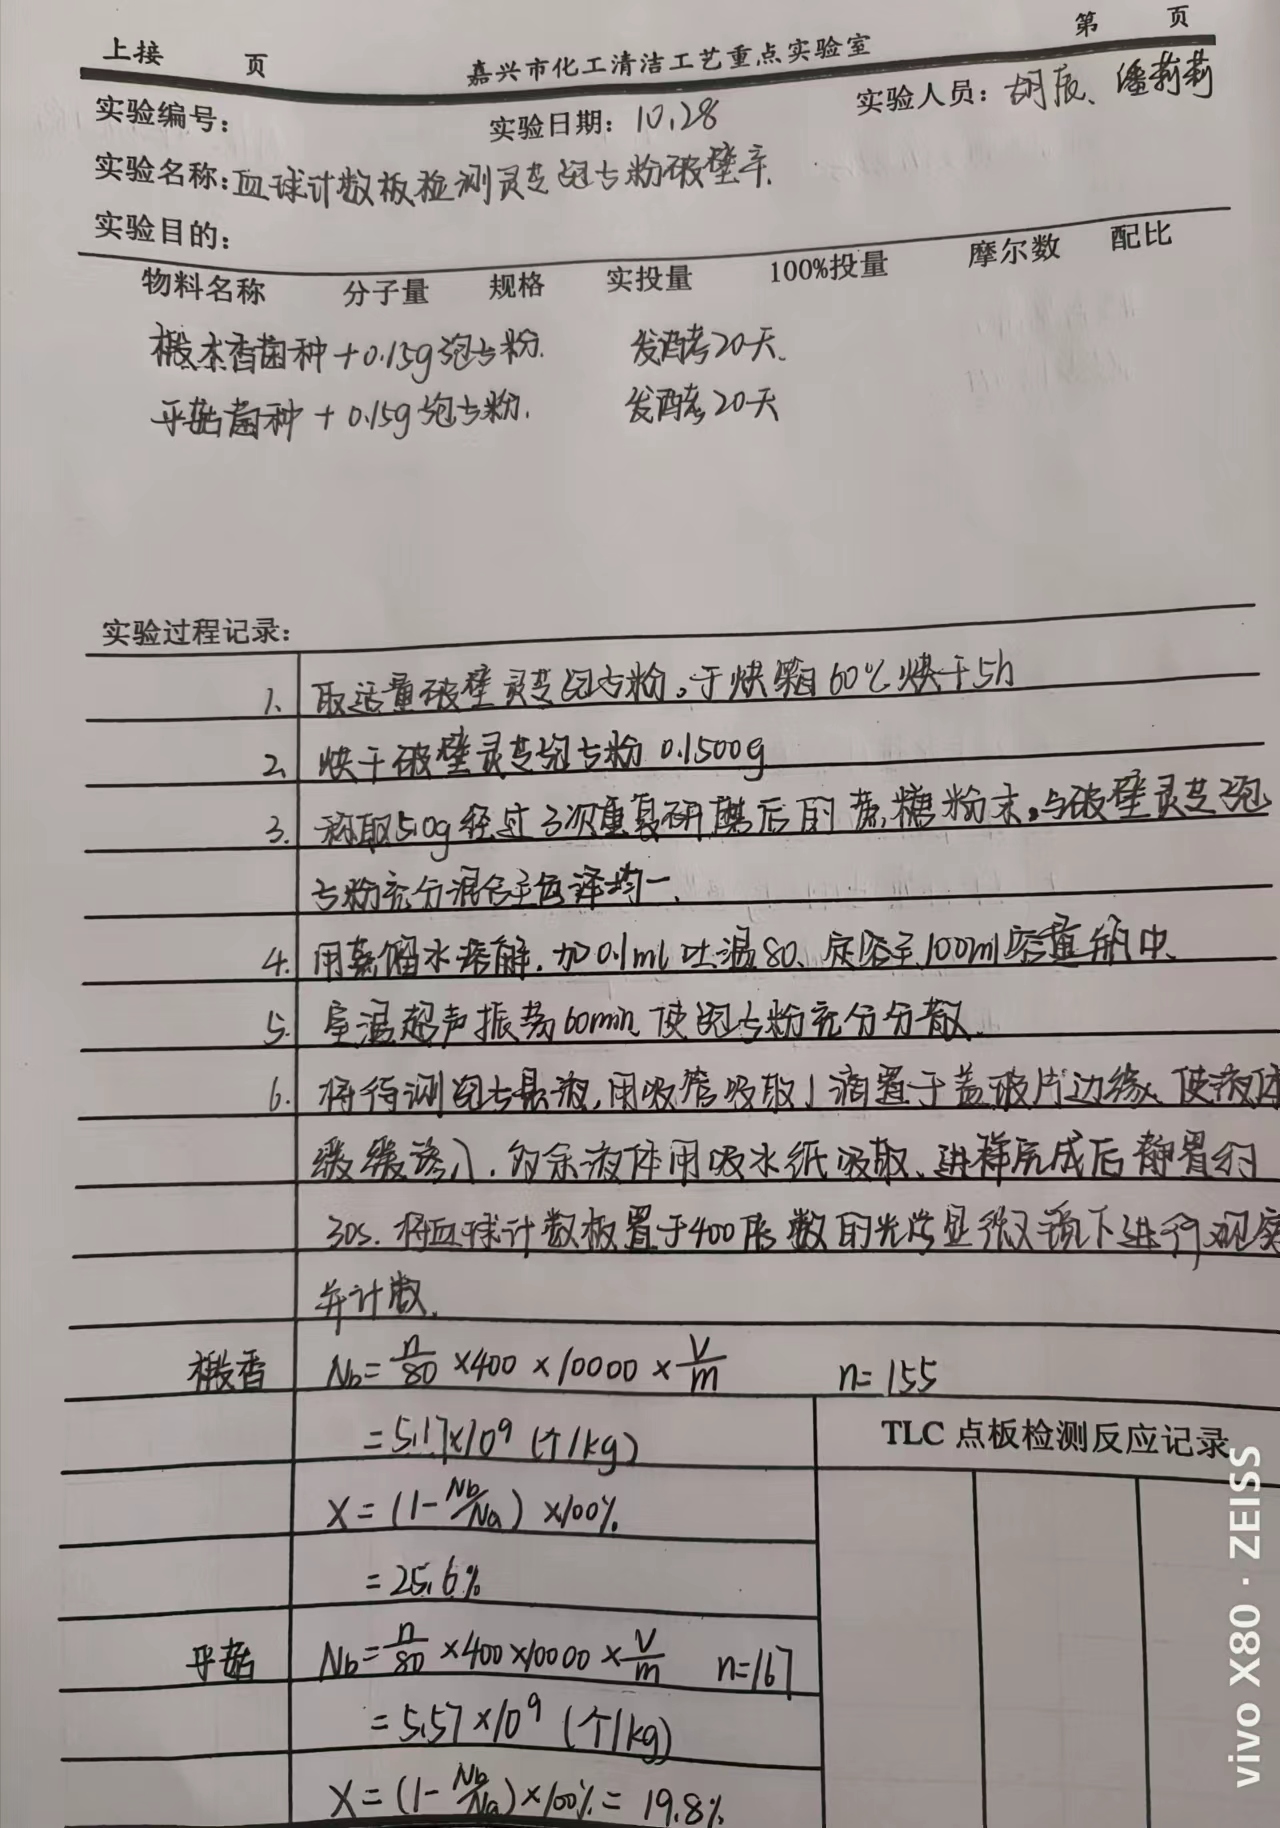 上接 页
嘉兴市化工清洁工艺重点实验室
第 页
实验编号： 实验日期：10.28 实验人员：胡辰、潘莉莉
实验名称：血球计数板检测灵芝孢子粉破壁率.
实验目的：
物料名称 分子量 规格 实投量 100%投量 摩尔数 配比
椴木香菌种+0.15g孢子粉. 发酵20天.
平菇菌种+0.15g孢子粉. 发酵20天
实验过程记录：
1. 取适量破壁灵芝孢子粉。于烘箱60℃烘干5h
2. 烘干破壁灵芝孢子粉 0.1500g
3. 称取5.0g经过3次重复研磨后的蔗糖粉末。与破壁灵芝孢
子粉充分混合至色泽均一.
4. 用蒸馏水溶解.加0.1ml吐温80、定容至100ml容量瓶中.
5. 室温超声振荡60min使孢子粉充分分散.
6. 将待测孢子悬液,用吸管吸取1滴置于盖玻片边缘.使液体
缓缓渗入.多余液体用吸水纸吸取、进样完成后静置约
30s.将血球计数板置于400倍数的光学显微镜下进行观察
并计数.
椴香 Nb=n/80×400×10000×V/m n=155
=5.17×10⁹(个/kg)
TLC 点板检测反应记录
X=(1-Nb/Na)×100%
=25.6%
平菇 Nb=n/80×400×10000×V/m n=167
=5.57×10⁹(个/kg)
X=(1-Nb/Na)×100%=19.8%
vivo X80 · ZEISS